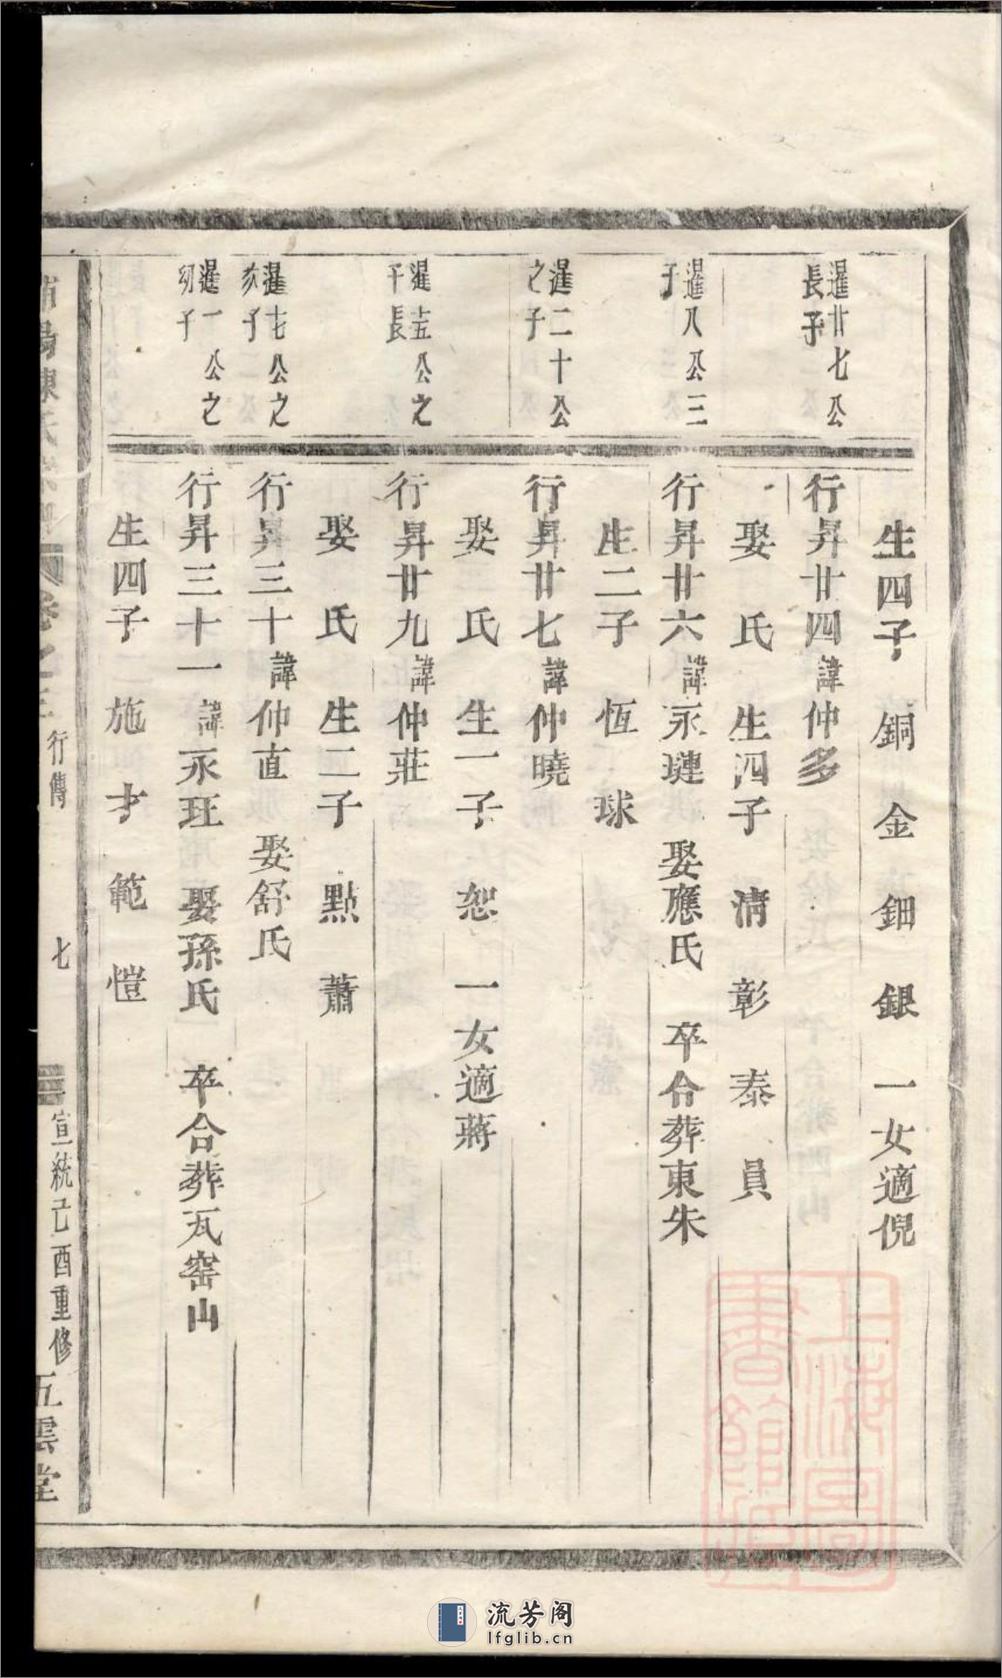 生四子 銅 金 鈿 銀 一女適倪
暹廿七公
長子
行昇廿四諱仲多
娶 氏 生四子 清 彰 泰 員
暹八公三
子
行昇廿六諱永璉 娶應氏 卒合葬東朱
生二子 恆 球
暹二十公
之子
行昇廿七諱仲曉
娶 氏 生一子 恕 一女適蔣
暹十五公之
長
行昇廿九諱仲莊
娶 氏 生二子 點 蕭
暹七公之
次子
行昇三十諱仲直 娶舒氏
暹一公之
幼子
行昇三十一諱永玨 娶孫氏 卒合葬瓦窑山
生四子 施 才 範 愷
陳氏
卷之
行傳
七
宣統己酉重修
五雲堂
上海圖
書館藏
流芳阁
lfglib.cn